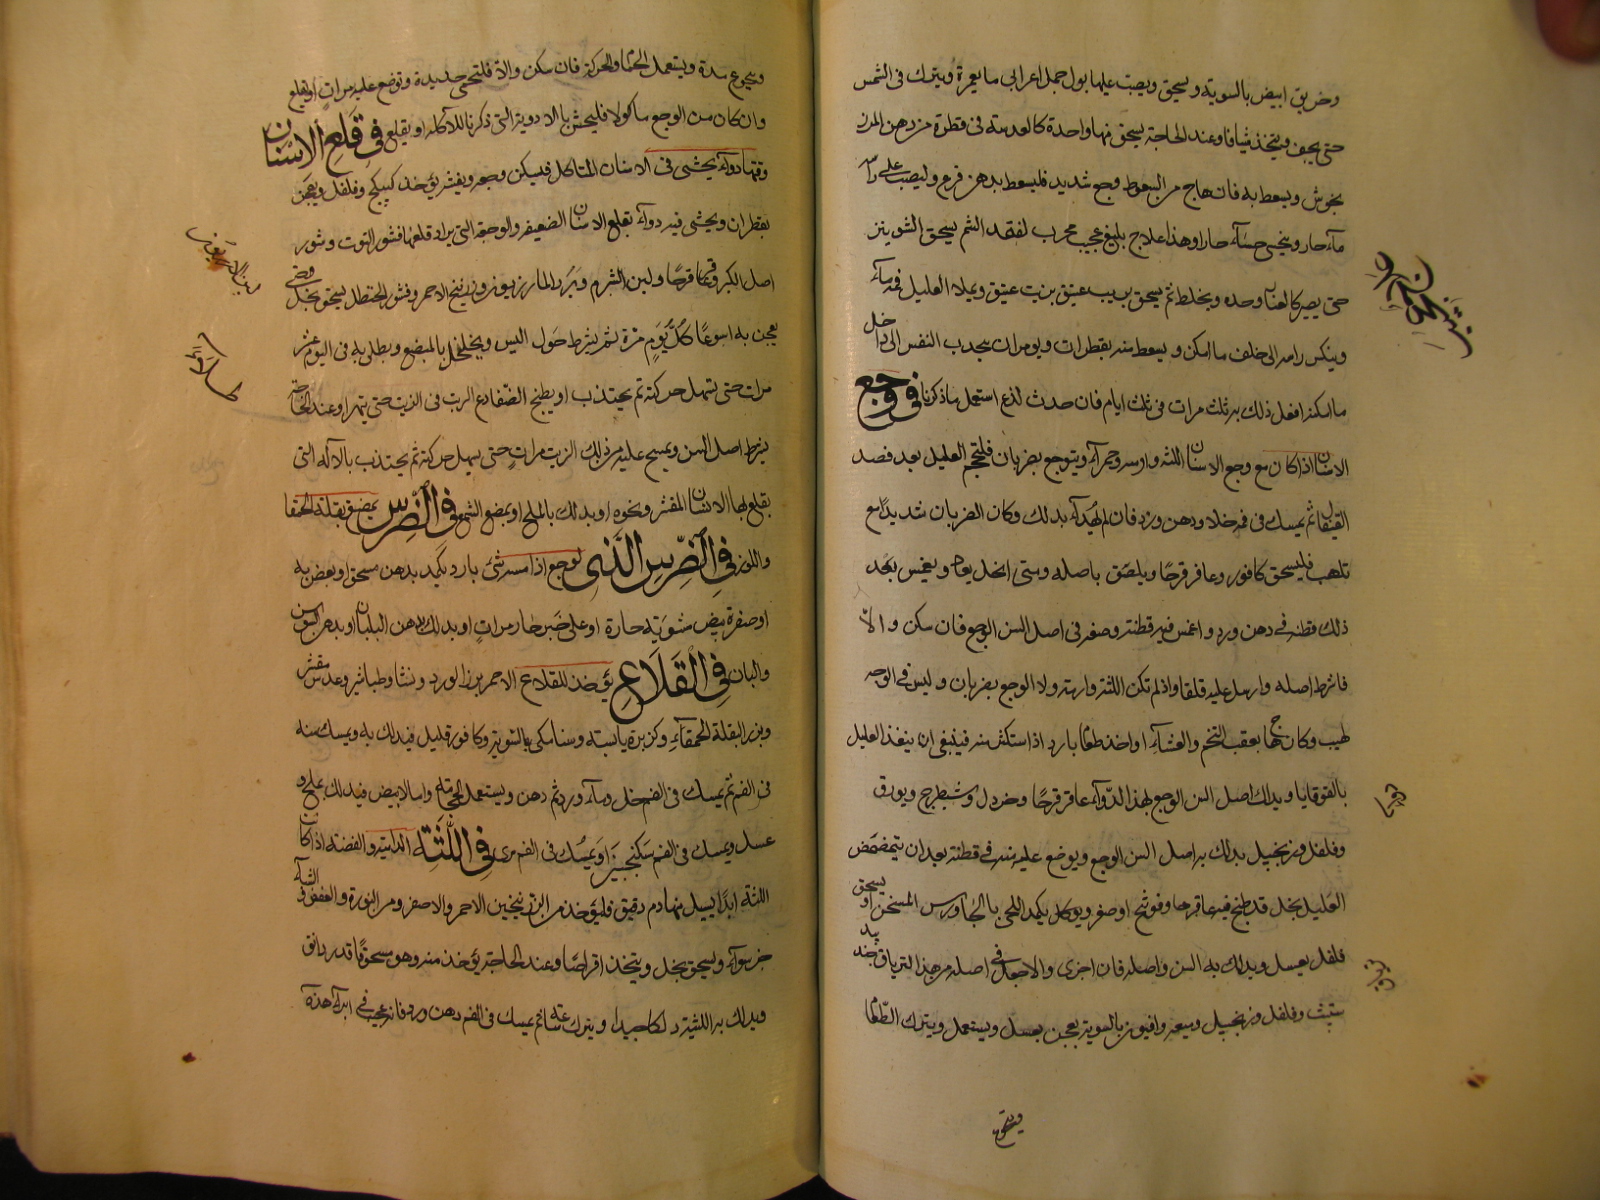 وخربق ابيض بالسوية ويسحق ويصب عليها بول جمل اعرابي ما يغمرة ويترك في الشمس
حتى يجف ويتخذ شيافا وعند الحاجة يسحق منها واحدة كالعدسة في قطرة من دهن المرز
نجوش ويسعط به فان هاج من السعوط وجع شديد فليسعط بدهن قرع وليصب على راسه
ماء حار ويتحسى حساء حارا وهذا علاج بليغ عجيب مجرب لفقد الشم يسحق الشونيز
حتى يصير كالغبار وحده ويخلط ثم يسحق بزيت عتيق ويملا العليل فمه ماء
وينكس راسه الى خلف ما امكن ويسعط منه بقطرات ويومر ان يجذب النفس الى داخل
ما امكنه افعل ذلك به ثلث مرات في ثلث ايام فان حدث لذع استعمل ما ذكرنا في وجع
الاسنان اذا كان مع وجع الاسنان اللثة وارمة وحمراء ويتوجع بضربان فليحجم العليل بعد فصد
القيفال ثم يمسك في فمه خلا ودهن ورد فان لم يهدأ بذلك وكان الضربان شديدا مع
تلهب فليسحق كافور وعاقر قرحا ويلصق باصله ويغمس بعد
ذلك قطنة في دهن ورد واغمس فيه قطنة وضعه في اصل السن الوجع فان سكن والا
فاشرط اصله وارسل عليه علقا واذا لم تكن اللثة وارمة ولا الوجع بضربان وليس في الوجه
لهيب وكان بعقب التخم والعشاء او اخذ طعاما بارد اذا استكثر منه فينبغي ان ينفذ العليل
بالقوقايا ويدلك اصل السن الوجع بهذا الدواء عاقر قرحا وخردل وشيطرج وبورق
وفلفل وزنجبيل يدلك به اصل السن الوجع ويوضع عليه منه في قطنة بعد ان يتمضمض
العليل بخل قد طبخ فيه عاقرقرحا وفوتنج او صعتر ويكمد اللحى بالجاورس المسخن او يسحق
فلفل بعسل ويدلك به السن واصله فان اجزى والا جعل في اصله من هذا الترياق جند بيد
ستر وفلفل وزنجبيل وميعة وافيون بالسوية يعجن بعسل ويستعمل ويترك الطعام
ويجوع مدة ويستعمل الحمام والحركة فان سكن والا فلتحمى حديدة وتوضع عليه مرات او يقلع
وان كان من الوجع ماكولا فليحش بالادوية التي ذكرنا للاكلة او يقلع في قلع الاسنان
دواء يحشى في الاسنان المتاكل فيسكن وجعه ويفتته يؤخذ كبيكج وفلفل ويعجن
بقطران ويحشى فيه دواء يقلع الاسنان الضعيفة والوجعة التي يراد قلعها قشور التوت وقشور
اصل الكبر وعاقر قرحا ولبن الشبرم وبزر المازريون وزرنيخ الاحمر وقشور الحنظل يسحق بخل
يعجن به اسبوعا كل يوم مرة ثم يشرط حول السن ويخلخل بالمبضع ويطلى به في اليوم عشر
مرات حتى تسهل حركته ثم يجتذب او يطبخ الضفادع في الزيت حتى يتهرا وعند الحاجة
يشرط اصل السن ويمسح عليه من ذلك الزيت مرات حتى يسهل حركته ثم يجتذب بالالة التي
يقلع بها الاسنان ونحوه او يدلك بالملح او بمضغ الشمع في الضرس يمضغ بقلة الحمقا
واللوز في الضرس الذي يوجع اذا مسه شئ بارد يكمد بدهن مسخن او يعض به
او صفرة بيض مشوية حارة او على خبز حار مرات او يدلك بدهن البلسان او بدهن السوسن
والبان في القلاع يؤخذ للقلاع الاحمر بزر الورد ونشا وطباشير وعدس مقشر
وبزر البقلة الحمقاء وكزبرة يابسة وسنا مكي بالسوية وكافور قليل فيدلك به ويمسك منه
في الفم ثم يمسك في الفم خل وماء ورد ثم دهن ويستعمل الحجامة واما الابيض فيدلك بملح و
عسل ويمسك في الفم سكنجبين او يمسك في الفم مري في اللثة الدامية والعفنة اذا كان
اللثة ابدا يسيل منها دم دقيق فليؤخذ من الزرنيخين الاحمر والاصفر ومن النورة والعفص
جزء سواء ويسحق بخل ويتخذ اقراصا وعند الحاجة يؤخذ منه وهو مسحوقا قدر دانق
ويدلك به اللثة دلكا جيدا ويترك ساعة ثم يمسك في الفم دهن ورد فانه عجيب في ابراء هذه